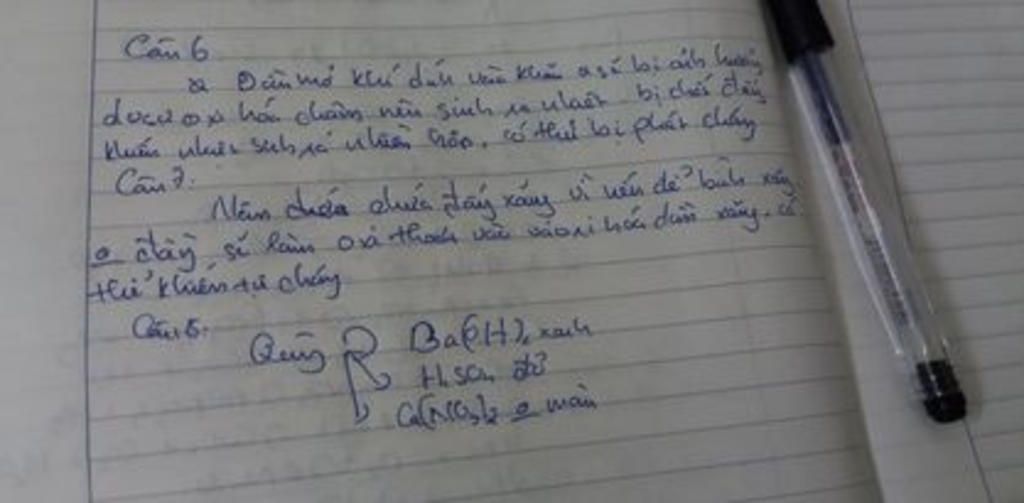 Câu 6
Dầu mỡ khi dính vào khăn sẽ bị ảnh hưởng
được oxi hóa chậm nên sinh ra nhiệt bị chất đầy
khiến nhiệt sinh ra nhiều hơn, có thể bị phát cháy
Câu 7:
Nên chứa đầy xăng vì nếu để bình xăng
đầy sẽ làm oxi thoát vào oxi hóa dần xăng. có
thể khiến tự cháy
Câu 5:
Quỳ Ba(OH)2 xanh
H2SO4 đỏ
Ca(NO3)2 màu